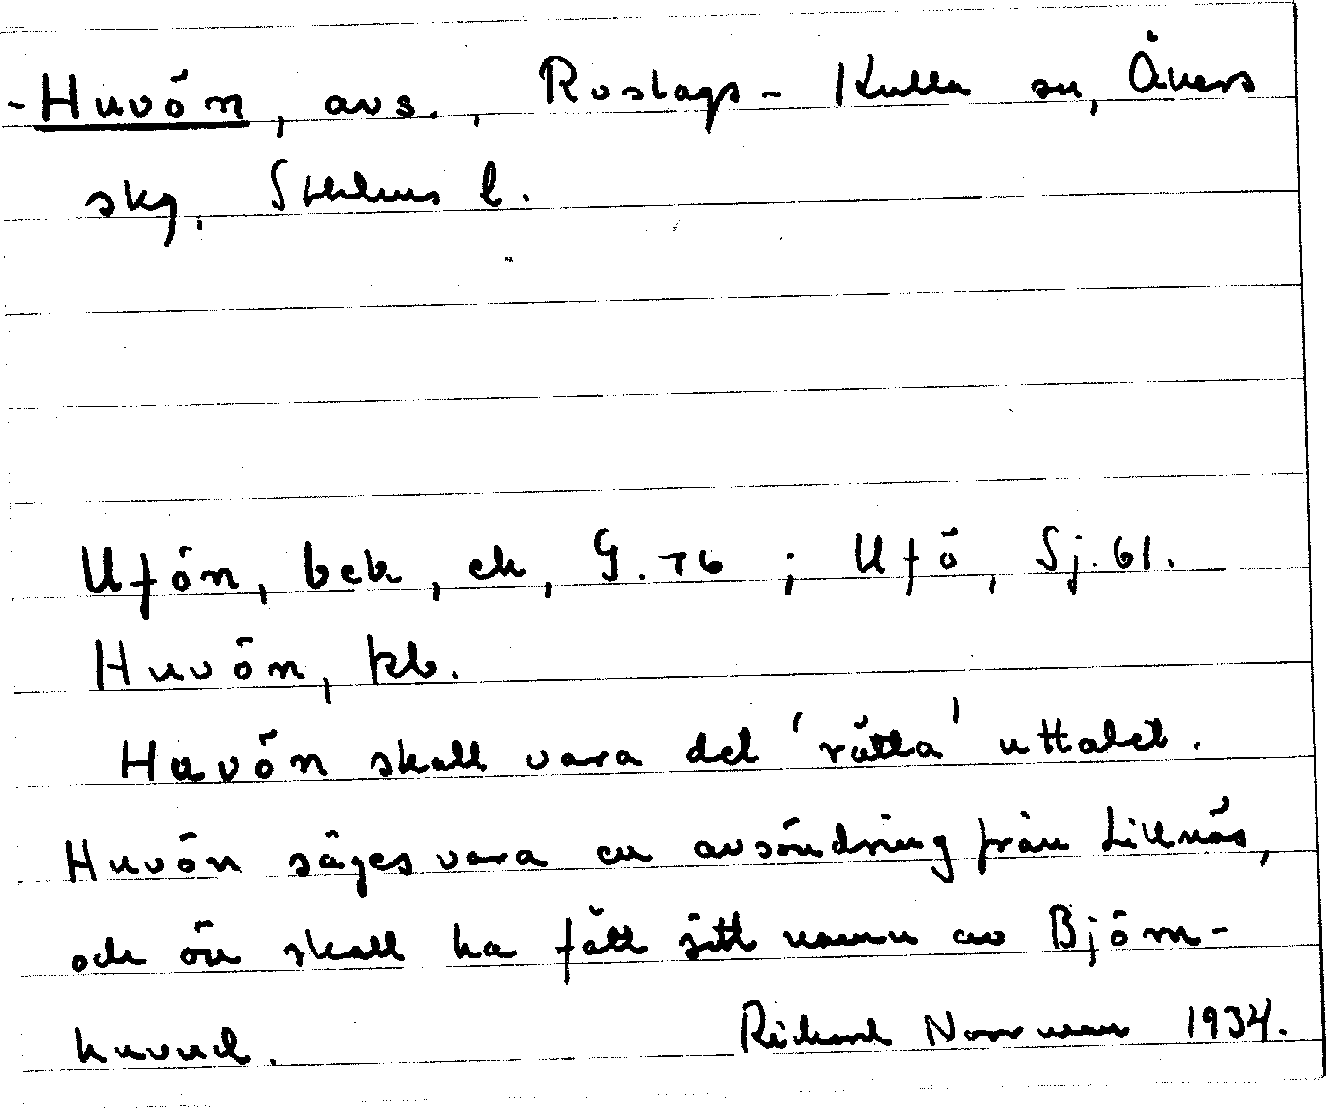 - Huvön, avs., Roslags-Kulla sn, Åkers
skg, Sthlms l.
Ufön, bek, ek, G. 76; Ufö, Sj. 61.
Huvön, kb.
Huvön skall vara det 'rätta' uttalet.
Huvön säges vara en avsöndring från Lillnäs,
och ön skall ha fått sitt namn av Björn-
huvud. Rickard Norrman 1934.